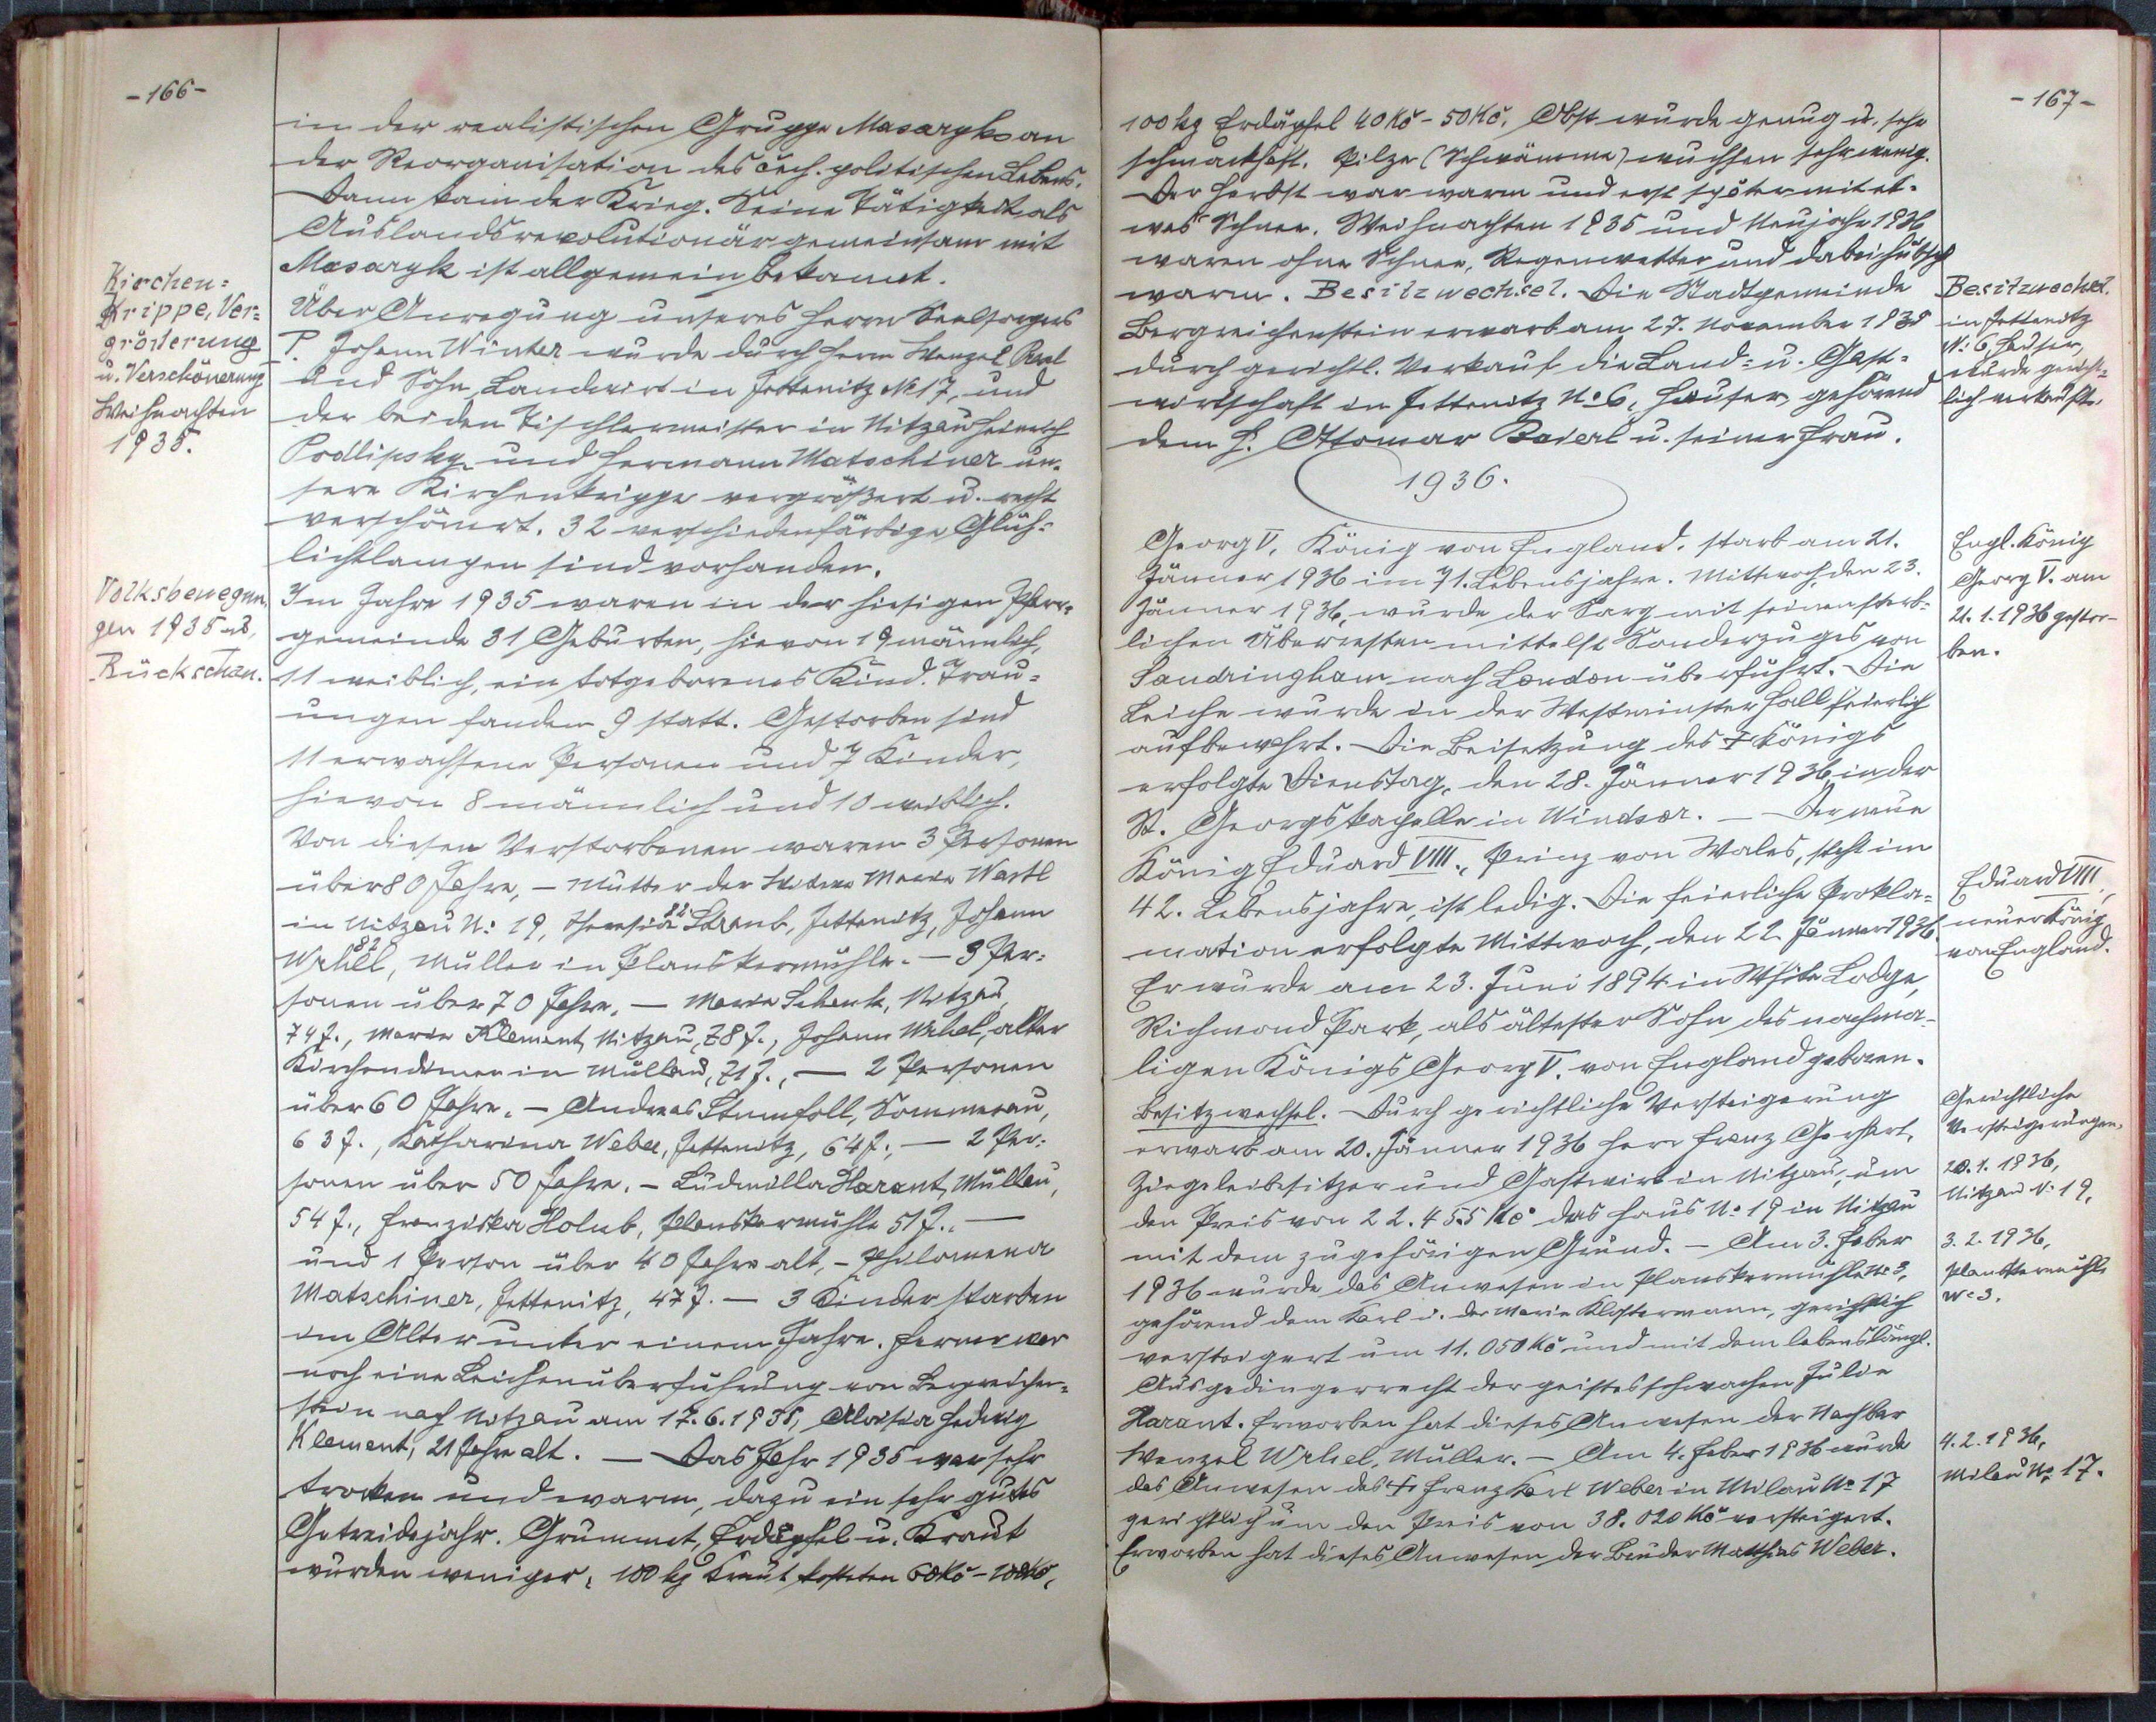 -166-
in der realistischen Gruppe Masaryks an
der Reorganisation des čech. politischen Lebens.
Dann kam der Krieg. Seine Tätigkeit als
Auslandsrevolutionär gemeinsam mit
Masaryk ist allgemein bekannt.
Kirchen=
Krippe, Ver=
größerung
u. Verschönerung
Weihnachten
1935.
Über Anregung unseres Herrn Seelsorgers
P. Johann Winter wurde durch Herrn Wenzel
und Sohn, Landwirt in Jettenitz № 17, und
der beiden Tischlermeister in Nitzau Heinrich
Podlipsky und Hermann Matschiner un-
sere Kirchenkrippe vergrößert u. recht
verschönert. 32 verschiedenfärbige Glüh=
lichtlampen sind vorhanden.
Volksbewegun,
gen 1935 u.
Rückschau.
Im Jahre 1935 waren in der hiesigen Pfarr=
gemeinde 31 Geburten, hievon 19 männlich,
11 weiblich, ein totgeborenes Kind. Trau=
ungen fanden 9 statt. Gestorben sind
11 erwachsene Personen und 7 Kinder,
hievon 8 männlich und 10 weiblich.
Von diesen Verstorbenen waren 3 Personen
über 80 Jahre, – Mutter der Witwe Maria Wastl
in Nitzau N: 19, Theresia Straub, Jettenitz, Johann
82
Wrhel, Müller in Planskermühle. – 3 Per=
sonen über 70 Jahre. – Maria Schenk, Nitzau,
74 J., Maria Klement, Nitzau, 78 J., Johann Wrhel, alter
Kirchendiener in Müllau, 71 J., – 2 Personen
über 60 Jahre. – Andreas Stumfoll, Sommerau,
63 J., Katharina Weber, Jettenitz, 64 J., – 2 Per=
sonen über 50 Jahre. – Ludmilla Harant, Müllau,
54 J., Franziska Holub, Planskermühle 51 J., –
und 1 Person über 40 Jahre alt, – Philomena
Matschiner, Jettenitz, 47 J. – 3 Kinder starben
im Alter unter einem Jahre. Ferner war
noch eine Leichenüberführung von Bergreichen=
stein nach Nitzau am 17.6.1935, Aloisia Hedwig
Klement, 21 Jahre alt. – Das Jahr 1935 war sehr
trocken und warm, dazu ein sehr gutes
Getreidejahr. Grummet, Erdäpfel u. Kraut
wurden weniger, 100 kg Kraut kosteten 60 Kč – 100 Kč,
-167-
100 kg Erdäpfel 40 Kč - 50 Kč. Obst wurde genug u. sehr
schmackhaft. Pilze (Schwämme) wuchsen sehr wenig.
Der Herbst war warm und erst später mit et-
was Schnee. Weihnachten 1935 und Neujahr 1936
waren ohne Schnee, Regenwetter und dabei hübsch
warm. Besitzwechsel. Die Stadtgemeinde
Bergreichenstein erwarb am 27. November 1935
durch gerichtl. Verkauf die Land= u. Gast=
wirtschaft in Jettenitz № 6, Hauser, gehörend
dem H. Ottomar Baierl u. seiner Frau.
Besitzwechsel.
in Jettenitz
N: 6, Hauser,
wurde gericht=
lich verkauft.
1936.
Georg V. König von England, starb am 21.
Jänner 1936 im 71. Lebensjahre. Mittwoch, den 23.
Jänner 1936, wurde der Sarg mit seinen sterb-
lichen Überresten mittelst Sonderzuges von
Sandringham nach London überführt. Die
Leiche wurde in der Westminster Hall feierlich
aufbewahrt. Die Beisetzung des † Königs
erfolgte Dienstag, den 28. Jänner 1936, in der
St. Georgskapelle in Windsor. – Der neue
König Eduard VIII., Prinz von Wales, steht im
42. Lebensjahre, ist ledig. Die feierliche Prokla=
mation erfolgte Mittwoch, den 22. Jänner 1936.
Er wurde am 23. Juni 1894 in White Lodge,
Richmond Park, als ältester Sohn des nachma-
ligen Königs Georg V. von England geboren.
Engl. König
Georg V. am
21.1.1936 gestor-
ben.
Eduard VIII,
neuer König
von England.
Besitzwechsel. Durch gerichtliche Versteigerung
erwarb am 20. Jänner 1936 Herr Franz Gerhart,
Ziegeleibesitzer und Gastwirt in Nitzau, um
den Preis von 22.455 Kč das Haus N: 19 in Nitzau
mit dem zugehörigen Grund. – Am 3. Feber
1936 wurde das Anwesen in Planskermühle № 3,
gehörend dem Karl u. der Maria Klostermann, gerichtlich
versteigert um 11.050 Kč und mit dem lebenslängl.
Ausgedingerrecht der geistesschwachen Julie
Harant. Erworben hat dieses Anwesen der Nachbar
Wenzel Wrhel, Müller. – Am 4. Feber 1936 wurde
das Anwesen des † Franz Karl Weber in Milau № 17
gerichtlich um den Preis von 38.020 Kč versteigert.
Erworben hat dieses Anwesen der Bruder Mathias Weber.
Gerichtliche
Versteigerungen.
20.1.1936,
Nitzau N: 19.
3.2.1936,
Planskermühle
№ 3.
4.2.1936,
Milau № 17.